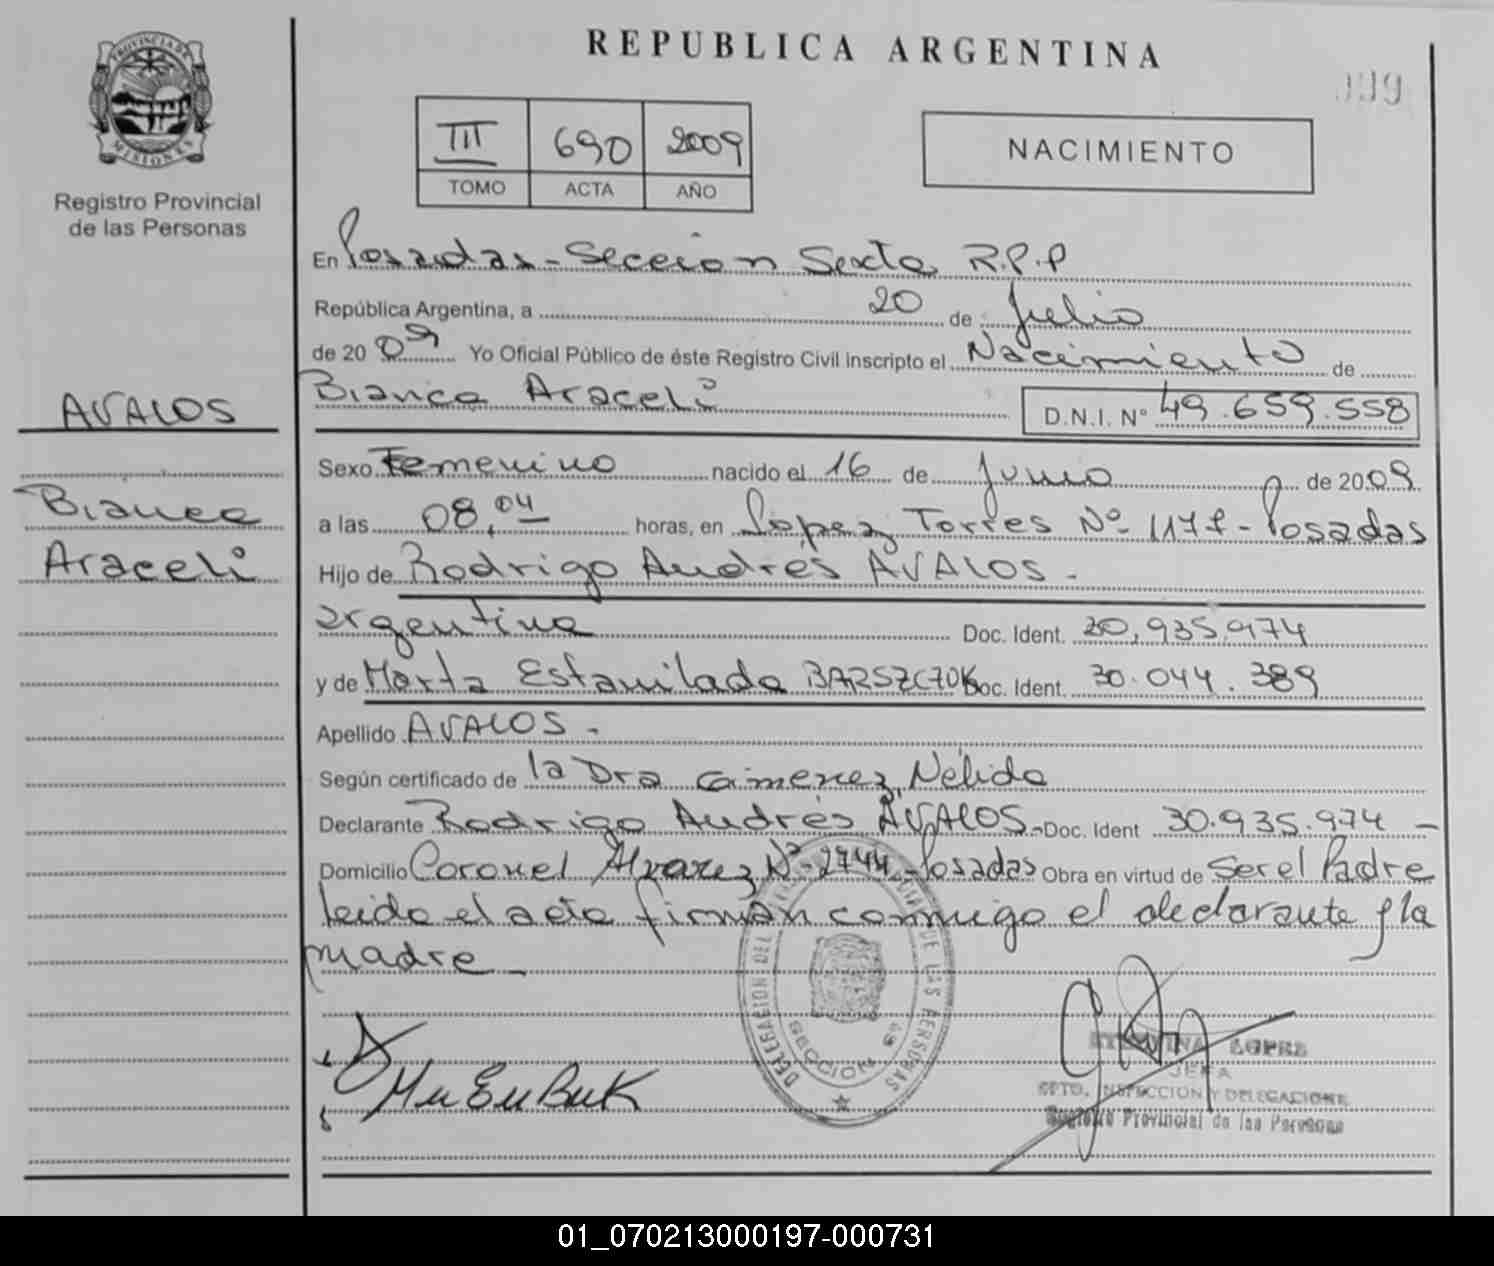 REPUBLICA ARGENTINA
PROVINCIA DE
MISIONES
Registro Provincial
de las Personas
III 690 2009
TOMO ACTA AÑO
NACIMIENTO
En Posadas - Sección Sexta R.P.P
República Argentina, a 20 de Julio
de 20 09 Yo Oficial Público de éste Registro Civil inscripto el Nacimiento de
Bianca Araceli D.N.I. Nº 49.659.558
AVALOS
Bianca
Araceli
Sexo Femenino nacido el 16 de Junio de 2009
a las 08,04 horas, en López Torres Nº 1177 - Posadas
Hijo de Rodrigo Andrés AVALOS -
argentina Doc. Ident. 30,935,974
y de Marta Estanilada BARSZCZUK Doc. Ident. 30.044.389
Apellido AVALOS -
Según certificado de la Dra Gimenez, Nélida
Declarante Rodrigo Andrés AVALOS - Doc. Ident 30.935.974 -
Domicilio Coronel Alvarez Nº 2744 - Posadas Obra en virtud de Ser el Padre
leido el acta firman conmigo el declarante y la
madre -
DELEGACION DEL DE LAS PERSONAS
SECCION 6ª
LOPEZ
JEFA
DPTO. INSPECCION Y DELEGACIONES
Registro Provincial de las Personas
01_070213000197-000731